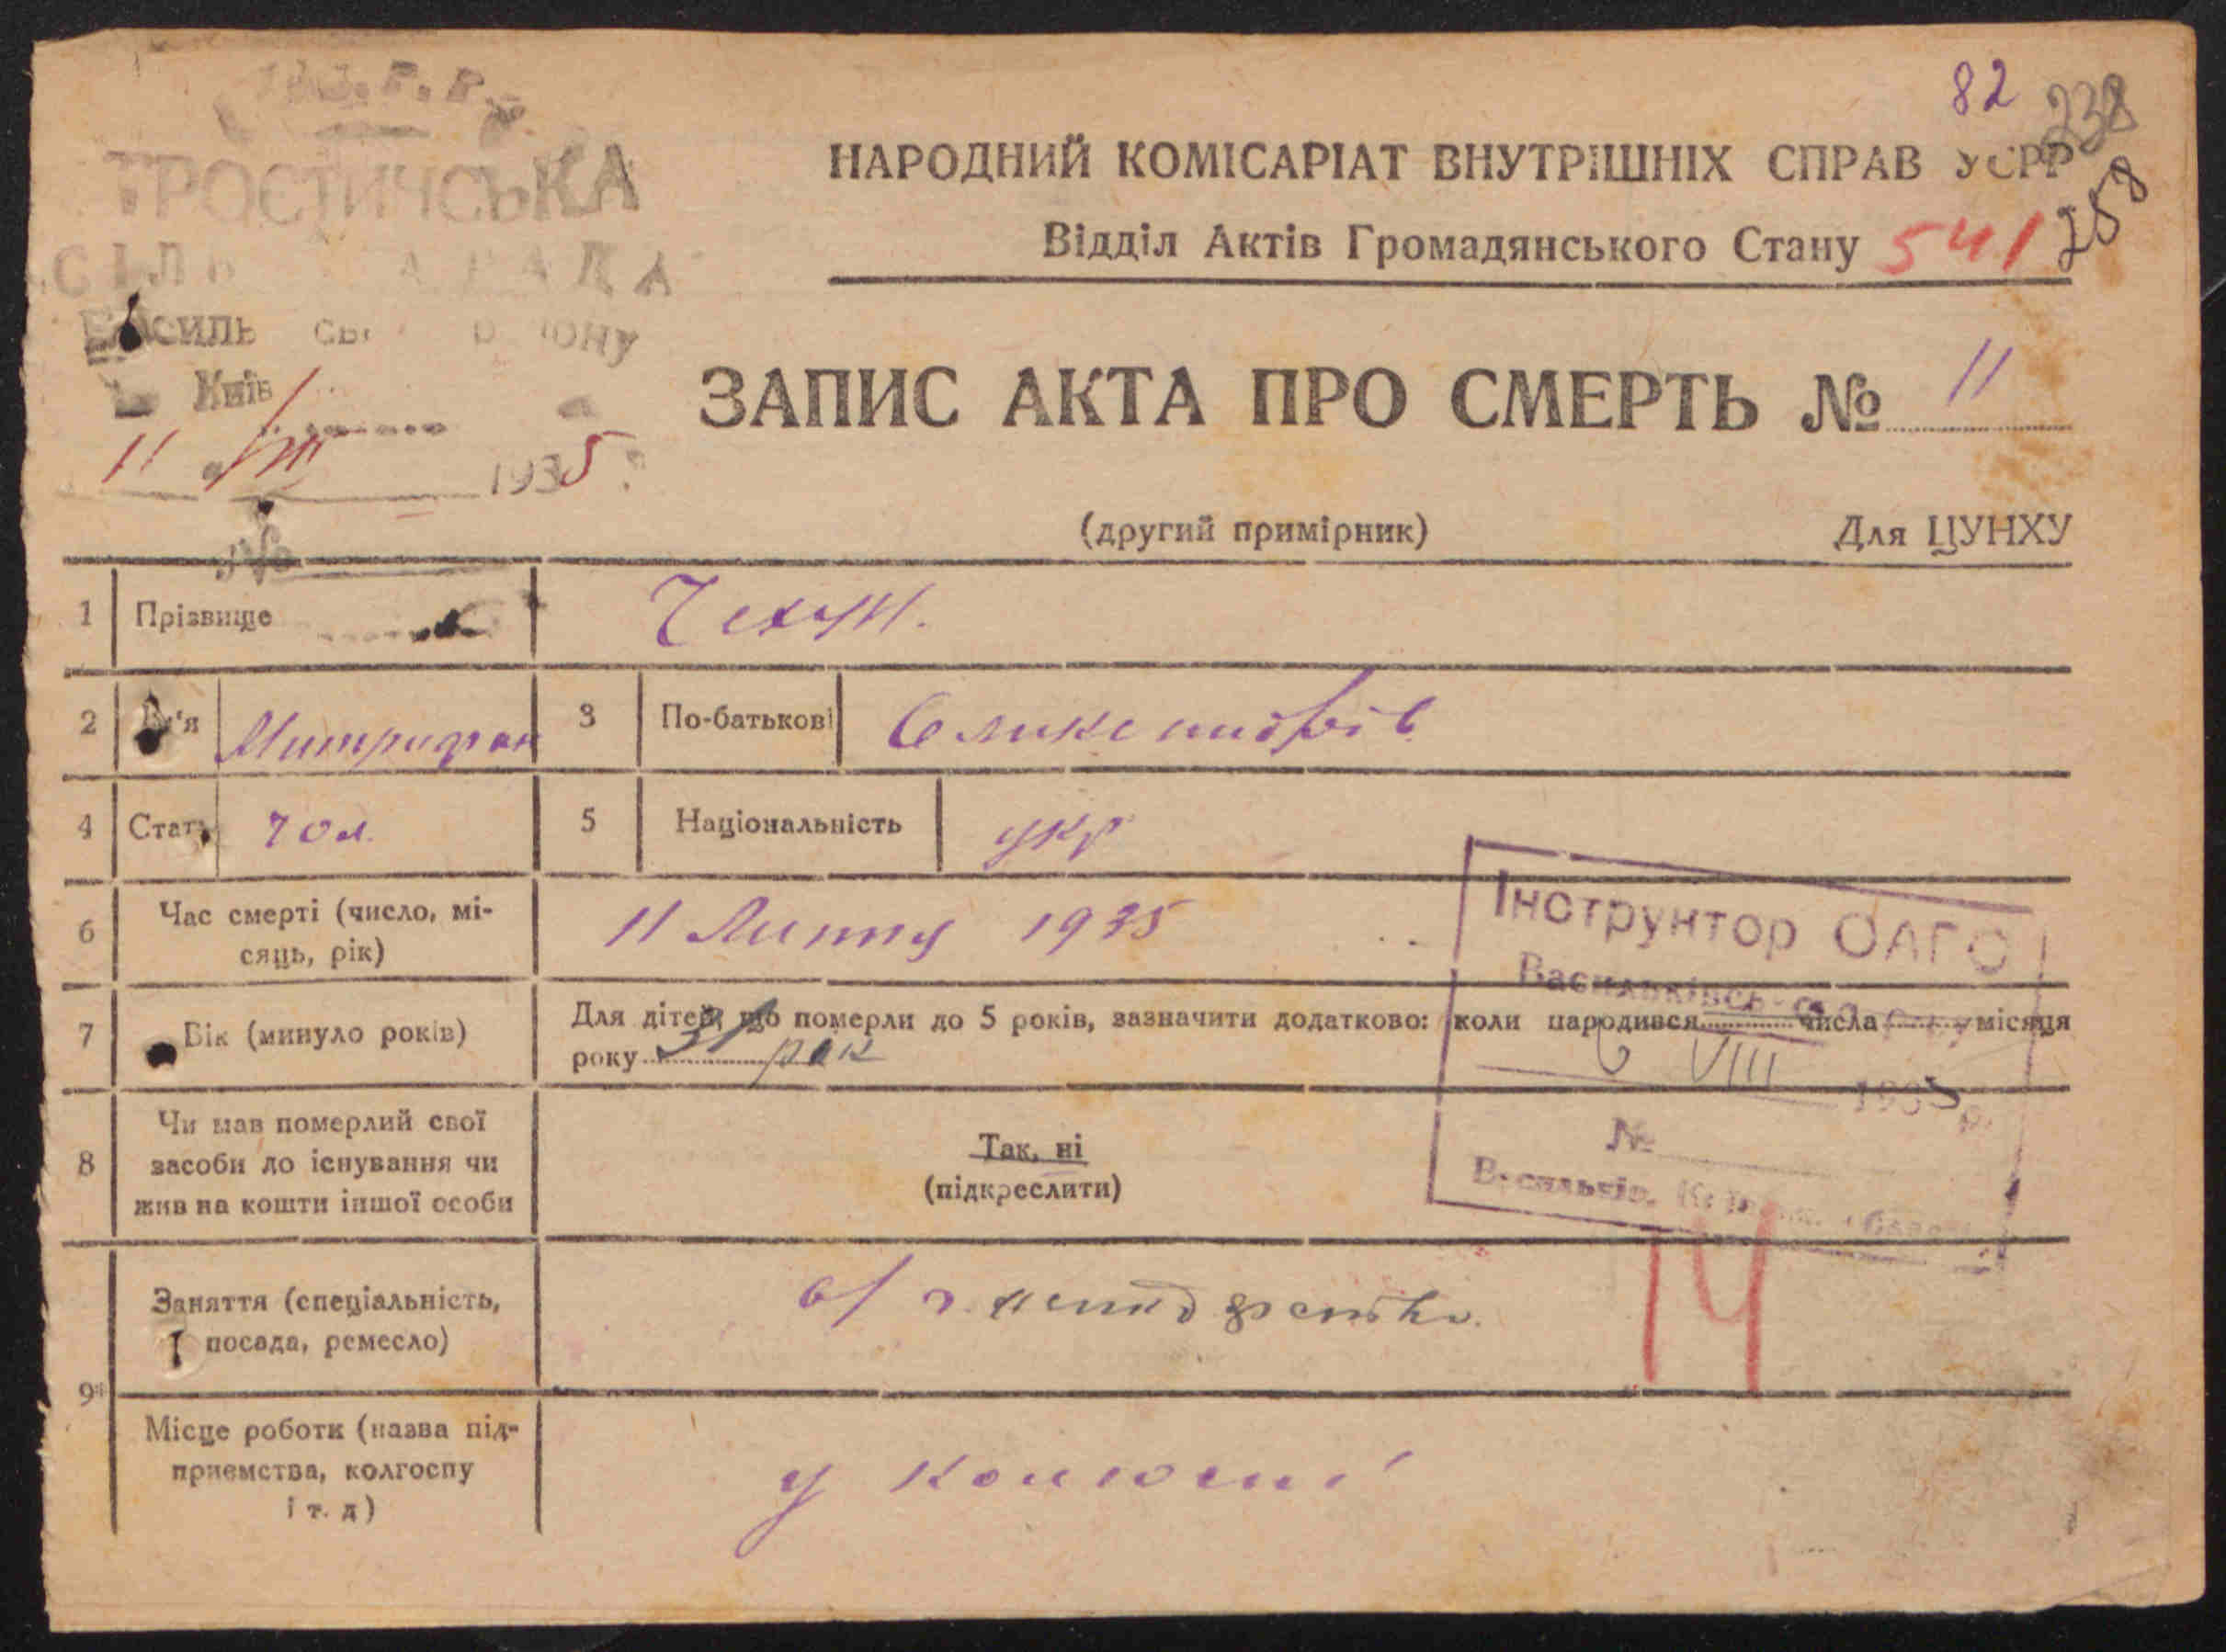 82
238
258
ТРОЄТИЧСЬКА
НАРОДНИЙ КОМІСАРІАТ ВНУТРІШНІХ СПРАВ УСРР
Відділ Актів Громадянського Стану 541
Київ
11 1935
ЗАПИС АКТА ПРО СМЕРТЬ № 11
(другий примірник) Для ЦУНХУ
1 Прізвище
2 Ім'я Митрифан 3 По-батькові
4 Стать чол. 5 Національність укр
6 Час смерті (число, місяць, рік) 11 Липня 1935
Інструктор ОАГС
Васильківського
7 Вік (минуло років) Для дітей, що померли до 5 років, зазначити додатково: коли народився числа місяця
року 31 рок
VIII 1935 р.
8 Чи мав померлий свої
засоби до існування чи
жив на кошти іншої особи
Так, ні
(підкреслити)
№
Васильків,
14
9 Заняття (спеціальність,
посада, ремесло)
Місце роботи (назва під-
приємства, колгоспу
і т. д)
у